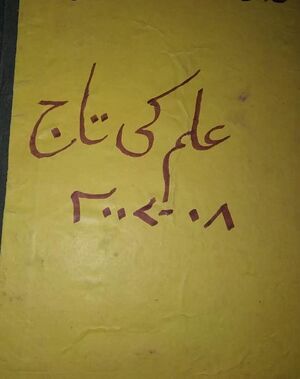 علم کی تاج
۲۰۰۷-۰۸